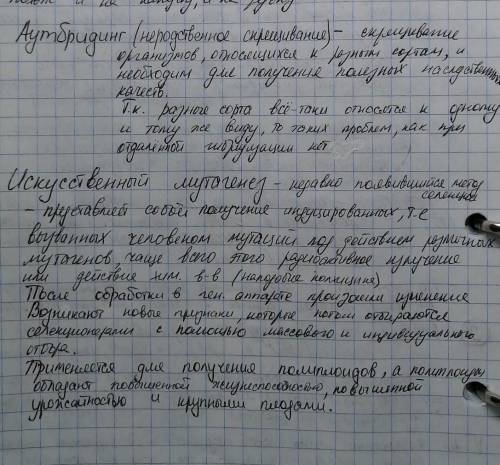 и не капусту, и не редьку
Аутбридинг (неродственное скрещивание) - скрещивание
организмов, относящихся к разным сортам, и
необходим для получения полезных наследственных
качеств.
Т.к. разные сорта всё-таки относятся к одному
и тому же виду, то таких проблем, как при
отдалённой гибридизации нет
Искусственный мутагенез - недавно появившийся метод
селекции
- представляет собой получение индуцированных, т.е
вызванных человеком мутаций под действием различных
мутагенов, чаще всего этого радиоактивное излучение
или действие хим. в-в (
После обработки в ген. аппарате произошли изменения
Возникают новые признаки, которые потом отбираются
селекционерами с помощью массового и индивидуального
отбора.
Применяется для получения полиплоидов, а полиплоиды
обладают повышенной жизнеспособностью, повышенной
урожайностью и крупными плодами.